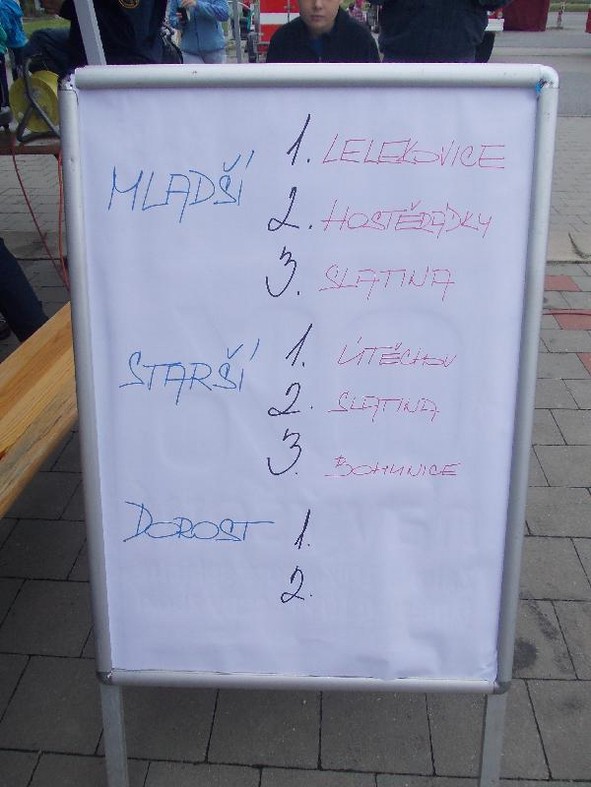 MLADŠÍ
1. LELEKOVICE
2. HOSTĚRÁDKY
3. SLATINA
STARŠÍ
1. ÚTĚCHOV
2. SLATINA
3. BOHUNICE
DOROST
1.
2.